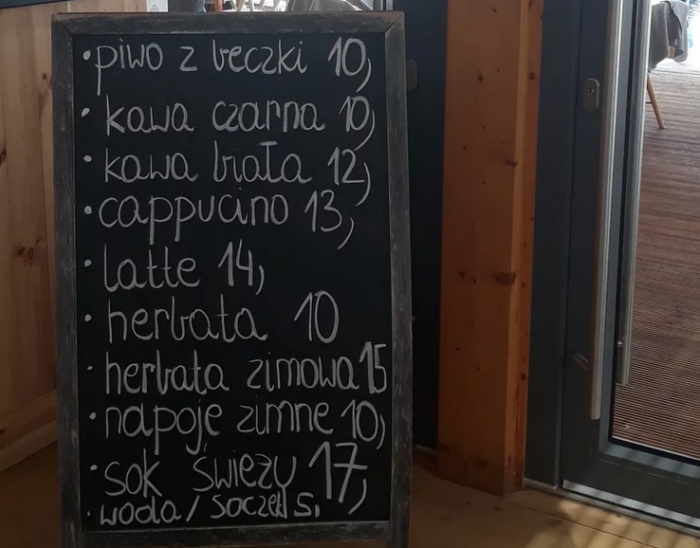 • piwo z beczki 10,
• kawa czarna 10,
• kawa biała 12,
• cappucino 13,
• latte 14,
• herbata 10
• herbata zimowa 15
• napoje zimne 10,
• sok świeży 17,
• woda / soczek 5,